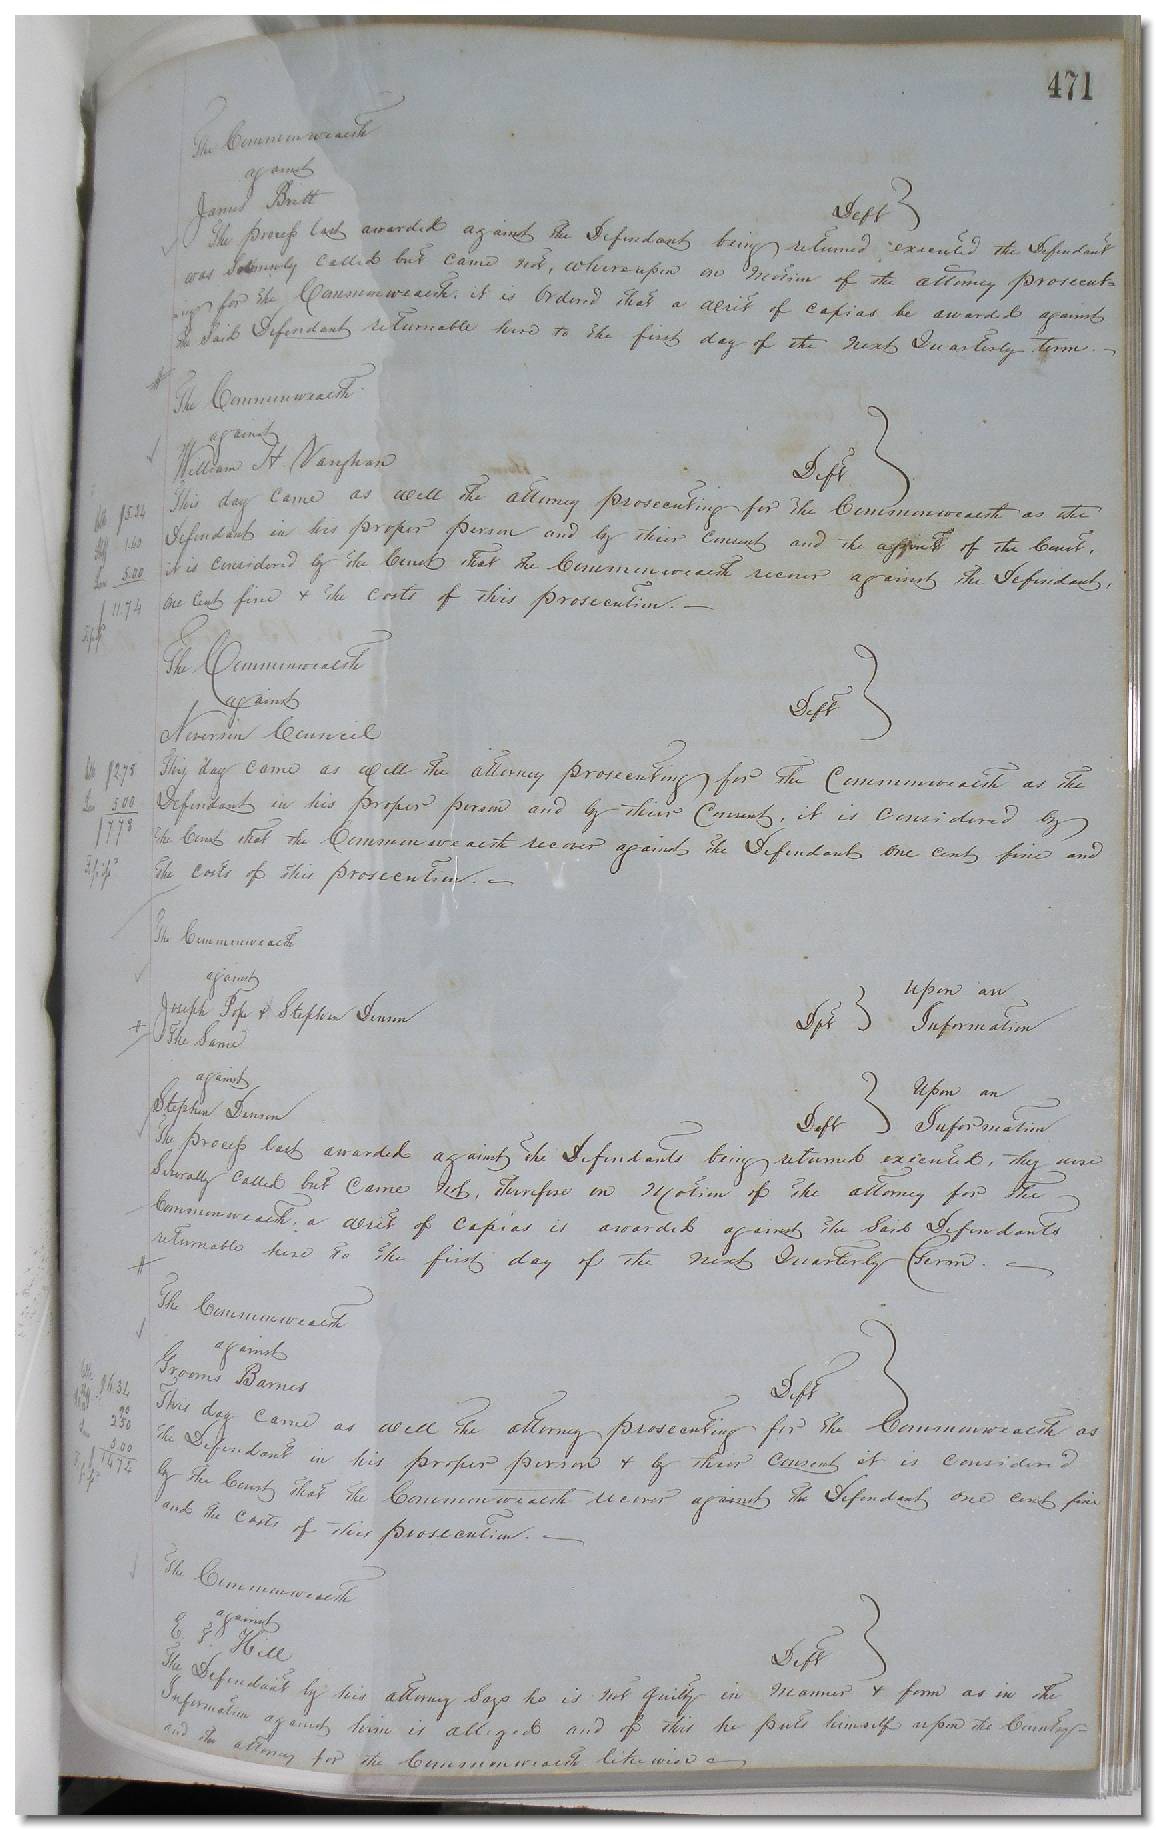 471
The Commonwealth
against
James Britt Deft
The process last awarded against the Defendant being returned executed the Defendant
was Solemnly called but came not, whereupon on Motion of the attorney prosecut=
ing for the Commonwealth. it is Ordered that a Writ of Capias be awarded against
the Said Defendant returnable here to the first day of the next Quarterly term.—
The Commonwealth
against
William H Vaughan Deft
This day came as well the attorney prosecuting for the Commonwealth as the
Defendant in his proper person and by their Consent and the assent of the Court,
it is considered by the Court that the Commonwealth recover against the Defendant,
one cent fine & the costs of this prosecution.—
$5.24
1.50
5.00
$11.74
The Commonwealth
against
Council Deft
This day came as well the attorney prosecuting for the Commonwealth as the
Defendant in his proper person and by their Consent, it is considered by
the Court that the Commonwealth recover against the Defendant one cent fine and
the costs of this prosecution.—
$2.78
5.00
$7.78
The Commonwealth
against
Joseph Pope & Stephen Denson Dft Upon an
Information
The Same
against
Stephen Denson Deft Upon an
Information
The process last awarded against the Defendants being returned executed, they were
Severally called but came not, therefore on Motion of the attorney for the
Commonwealth, a Writ of Capias is awarded against the Said Defendants
returnable here to the first day of the next Quarterly Term.—
The Commonwealth
against
Grooms Barnes Deft
This day came as well the attorney prosecuting for the Commonwealth as
the Defendant in his proper person & by their consent it is considered
by the Court that the Commonwealth recover against the Defendant one cent fine
and the costs of this prosecution.—
5.00
The Commonwealth
against
E. Hill Deft
The Defendant by his attorney Says he is not guilty in manner & form as in the
Information against him is alleged and of this he puts himself upon the Country—
and the attorney for the Commonwealth likewise—